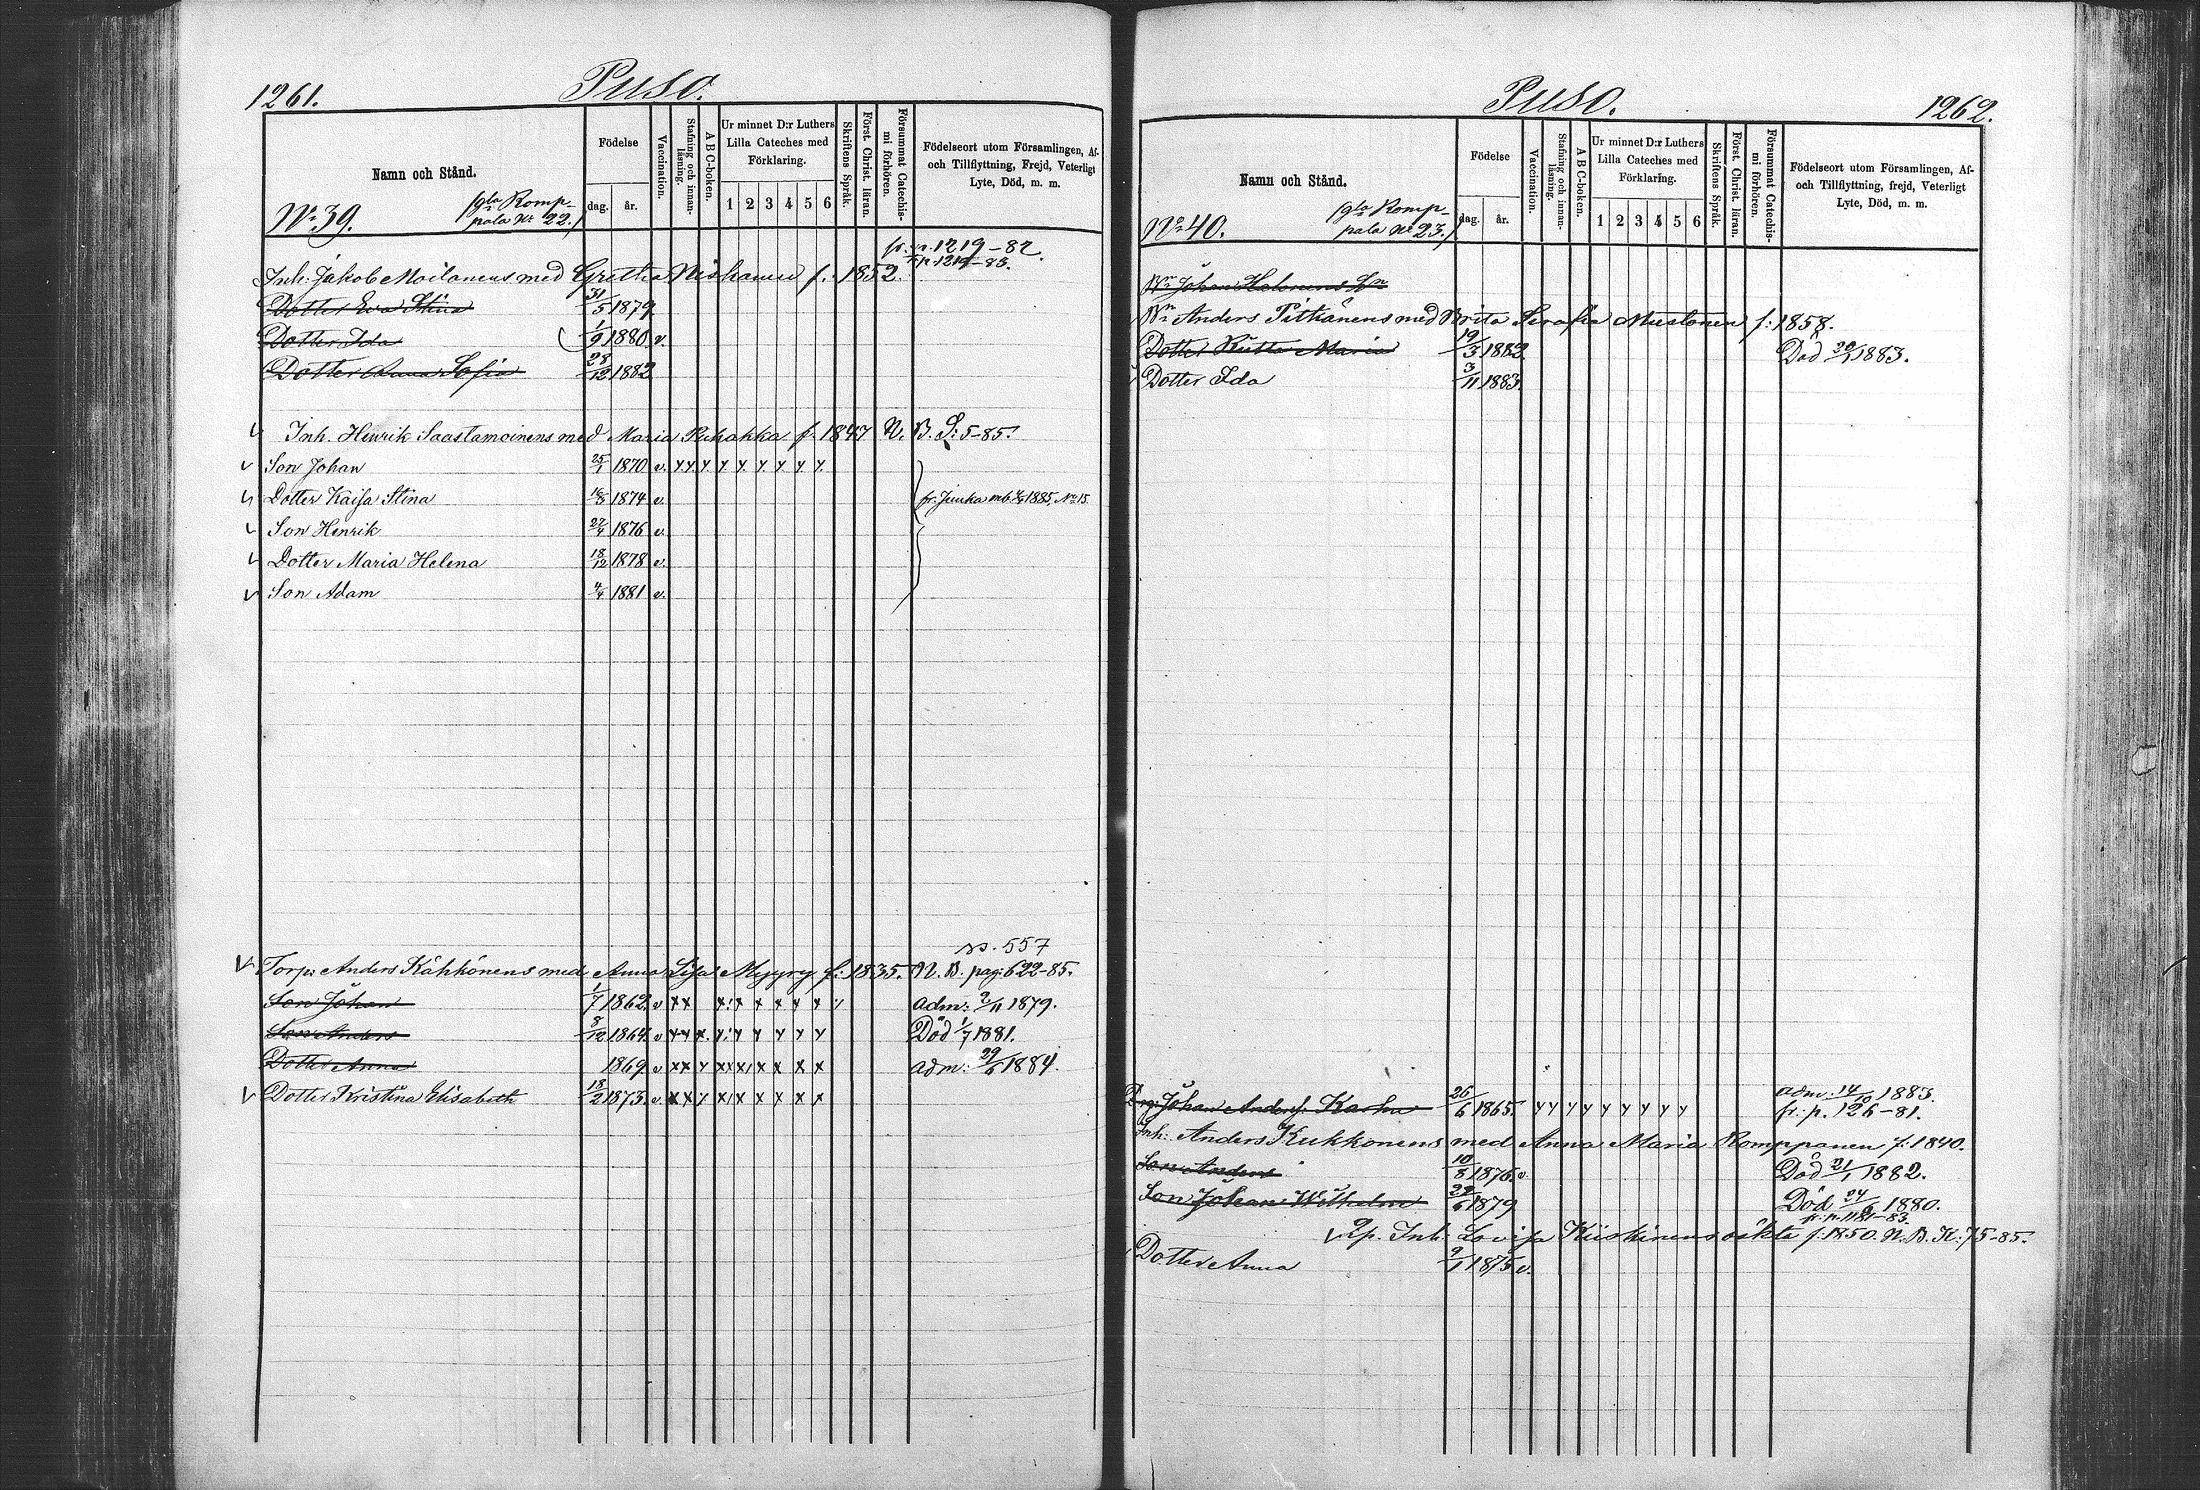 1261.
Puso.
Namn och Stånd.
Födelse
dag. år.
Vaccination.
Stafning och innanläsning.
A B C-boken.
Ur minnet D:r Luthers Lilla Cateches med Förklaring.
1 2 3 4 5 6
Skriftens Språk.
Först. Christ. läran.
Försummat Catechismi förhören.
Födelseort utom Församlingen, Af- och Tillflyttning, Frejd, Veterligt Lyte, Död, m. m.
No 39.
(gla Romppala No 22.)
fr. p. 1219-82.
Inh: Jakob Moilanens med Gretha f. 1852.
Dotter Eva Stina 31/5 1879
Dotter Ida 1/9 1880 v.
Dotter Anna Sofia 28/12 1882
Inh. Henrik Saastamoinens med Maria Puhakka f. 1847 N. B. S: 5-85.
Son Johan 25/1 1870 v.
Dotter Kaisa Stina 1874 v. fr. Juuka 1885, No 15.
Son Henrik 27/4 1876 v.
Dotter Maria Helena 18/12 1878 v.
Son Adam 4/4 1881 v.
557
Torp: Anders Kähkönens med Anna Lisa Myyry f: 1835. N. B. pag: 622-85.
Son Johan 1/7 1862 v adm: 2/11 1879.
Son Anders 8/12 1864 v Död 1/7 1881.
Dotter Anna 1869 v adm: 29/6 1884.
Dotter Kristina Elisabeth 18/2 1873. v.
Puso.
1262.
Namn och Stånd.
Födelse
dag. år.
Vaccination.
Stafning och innanläsning.
A B C-boken.
Ur minnet D:r Luthers Lilla Cateches med Förklaring.
1 2 3 4 5 6
Skriftens Språk.
Först. Christ. läran.
Försummat Catechismi förhören.
Födelseort utom Församlingen, Af- och Tillflyttning, frejd, Veterligt Lyte, Död, m. m.
No 40.
(gla Romppala No 23.)
Bn Johan Halonens
Bn Anders Pitkänens med Brita Serafia Mustonen f: 1858.
Dotter Maria 19/3 1882 Död 1883.
Dotter Ida 3/11 1883
Johan Anders: Karhu 26/6 1865. adm: 14/10 1883.
fr: p. 126-81.
Inh: Anders Kukkonens med Anna Maria Romppanen f: 1840.
Son Anders 10/8 1876. v. Död 21/1 1882.
Son Johan Wilhelm 1879 Död 1880.
fr. p. 1181-83.
Inh: Lovisa Kiiskinens oäkta f: 1850. N. B. K: 75-85.
Dotter Anna 9/1 1875 v.